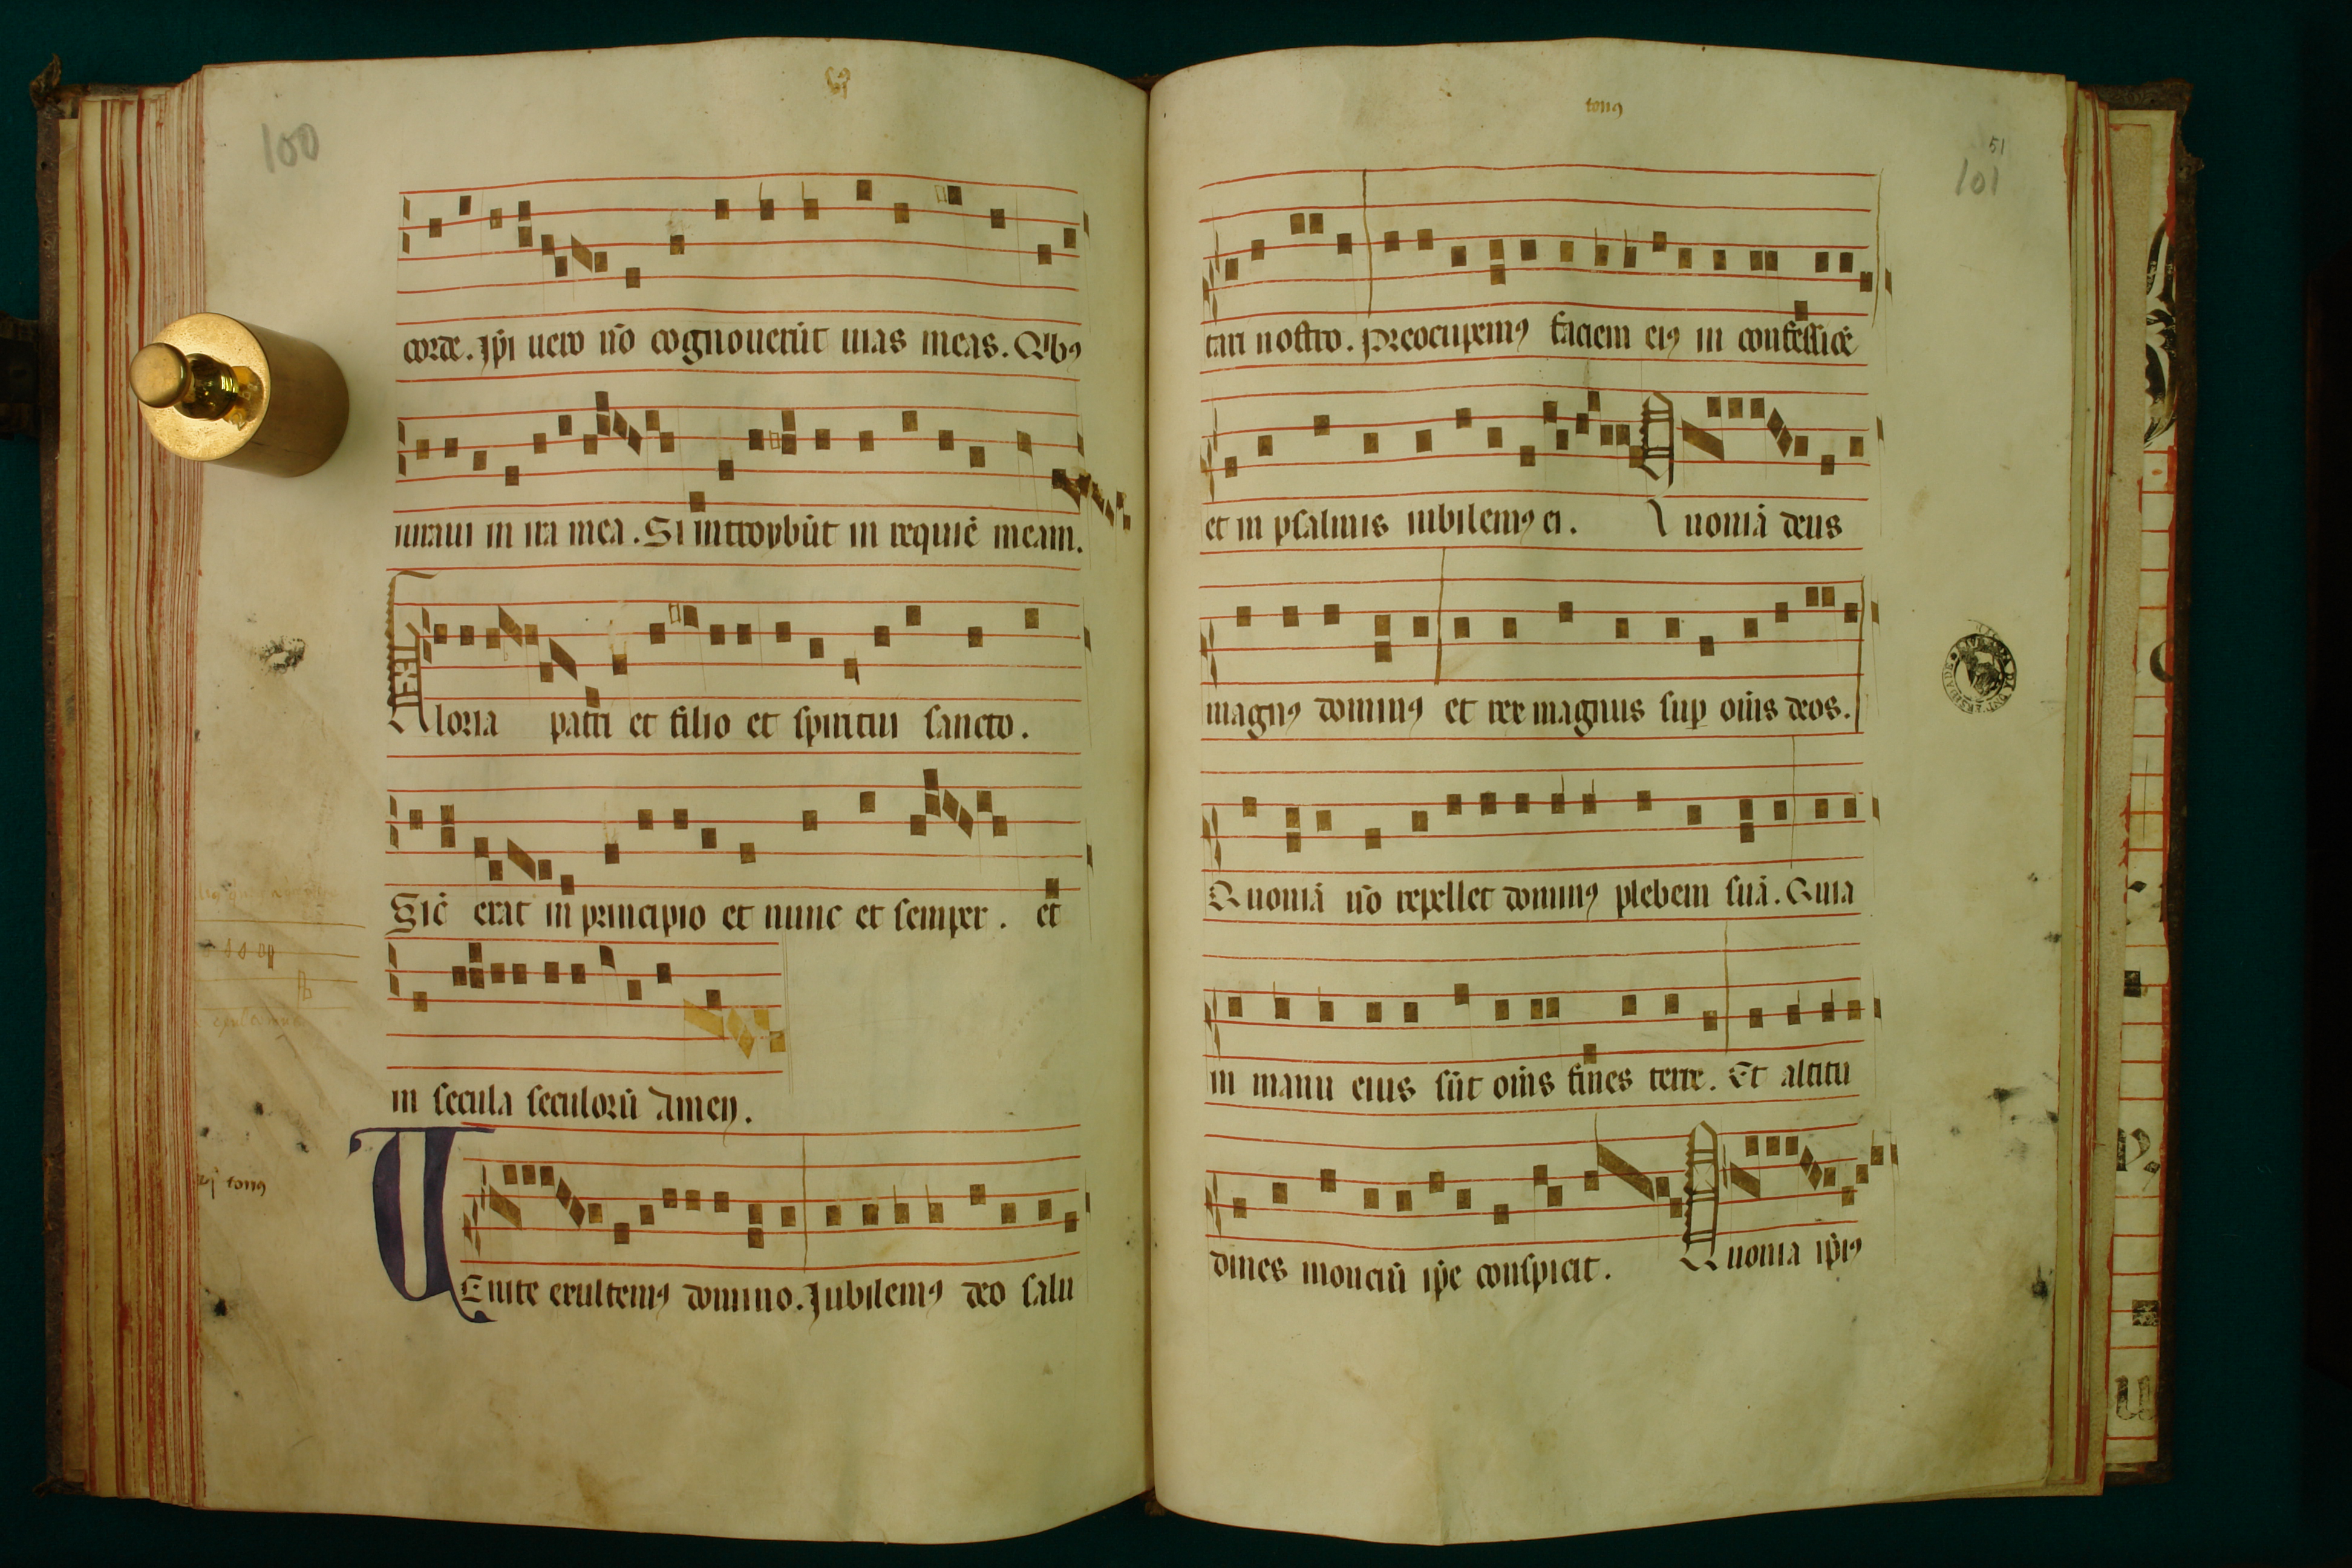 100
corde. ip̄i uero nō cognouerūt uias meas. Qibꝯ
iuraui in ira mea. Si introybūt in requiē meam.
Gloria patri et filio et spiritui sancto.
Sic̄ erat in principio et nunc et semper. et
in secula seculorū Amen.
vj tonꝯ
UEnite exultemꝯ domino. Iubilemꝯ deo salu
tonꝯ
51
101
tari nostro. Preocupemꝯ faciem eiꝯ in confessiōe
et in psalmis iubilemꝯ ei. Quoniā deus
magnꝯ dominꝯ et rex magnus suꝑ om̄is deos.
Quoniā nō repellet dominꝯ plebem suā. Quia
in manu eius sūt om̄is fines terre. Et altitu
dines monciū ip̄e conspicit. Quonia ip̄iꝯ